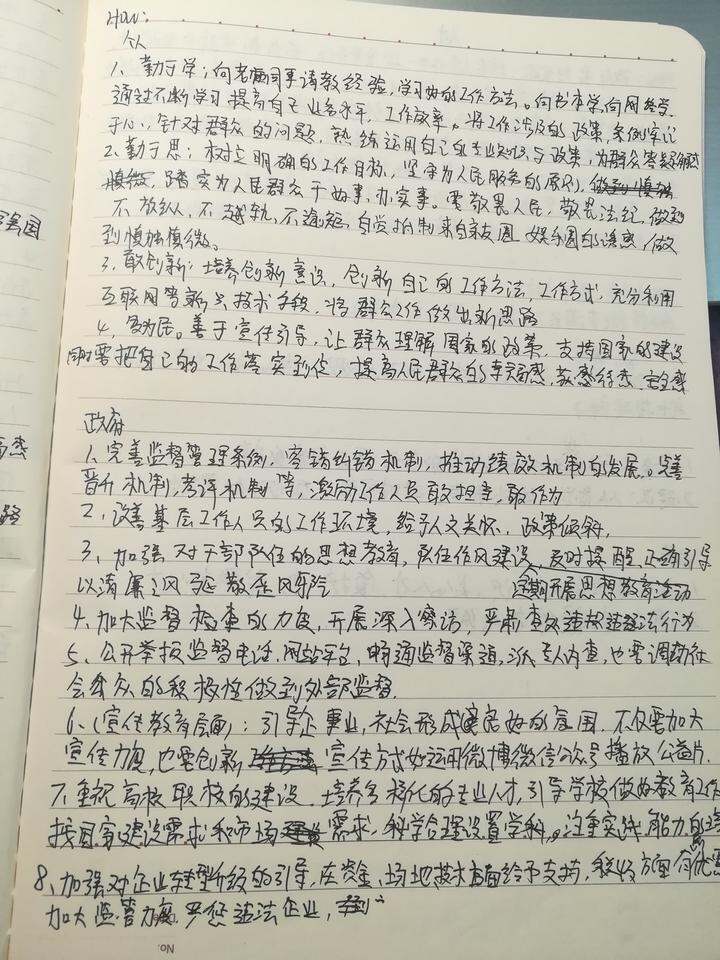 How:
个人
1、勤于学：向老师同事请教经验，学习好的工作方法。向书本学，向网络学
通过不断学习提高自己业务水平，工作效率。将工作涉及的政策，条例牢记
于心，针对群众的问题，熟练运用自己的专业知识与政策，为群众答疑解惑
2、勤于思：树立明确的工作目标，坚守为人民服务的原则，做到慎独
慎微，踏实为人民群众干好事，办实事。要敬畏人民，敬畏法纪，做到
不放纵、不越轨、不逾矩，自觉抵制来自朋友圈、娱乐圈的诱惑，做
到慎独慎微。
3、敢创新：培养创新意识，创新自己的工作方法，工作方式，充分利用
互联网等新兴技术手段，将群众工作做出新思路
4、务为民。善于宣传引导，让群众理解国家的政策，支持国家的建设
同时要把自己的工作落实到位，提高人民群众的幸福感，获感得感，安全感
政府
1、完善监督管理条例，容错纠错机制，推动绩效机制的发展。完善
晋升机制，考评机制等，激励工作人员敢担当，敢作为
2、改善基层工作人员的工作环境，给予人文关怀，政策倾斜，
3、加强对干部队伍的思想教育，队伍作风建设，及时提醒，正确引导
以清廉之风 驱散歪风邪气 定期开展思想教育活动
4、加大监督检查的力度，开展深入察访，严肃查处违规违法行为
5、公开举报监督电话，网站平台，畅通监督渠道，派专人内查，也要调动社
会公众的积极性做到外部监督.
6、（宣传教育层面）：引导企事业，社会形成良好的氛围，不仅要加大
宣传力度，也要创新 宣传方式如运用微博微信公众号播放公益片.
7、重视高校职校的建设，培养多样化的专业人才，引导学校做好教育工作
找国家建设需求和市场 需求，科学合理设置学科，注重实践能力的培
8、加强对企业转型升级的引导，在资金、场地、技术方面给予支持，税收方面有优惠
加大监管力度 严惩违法企业，
No: